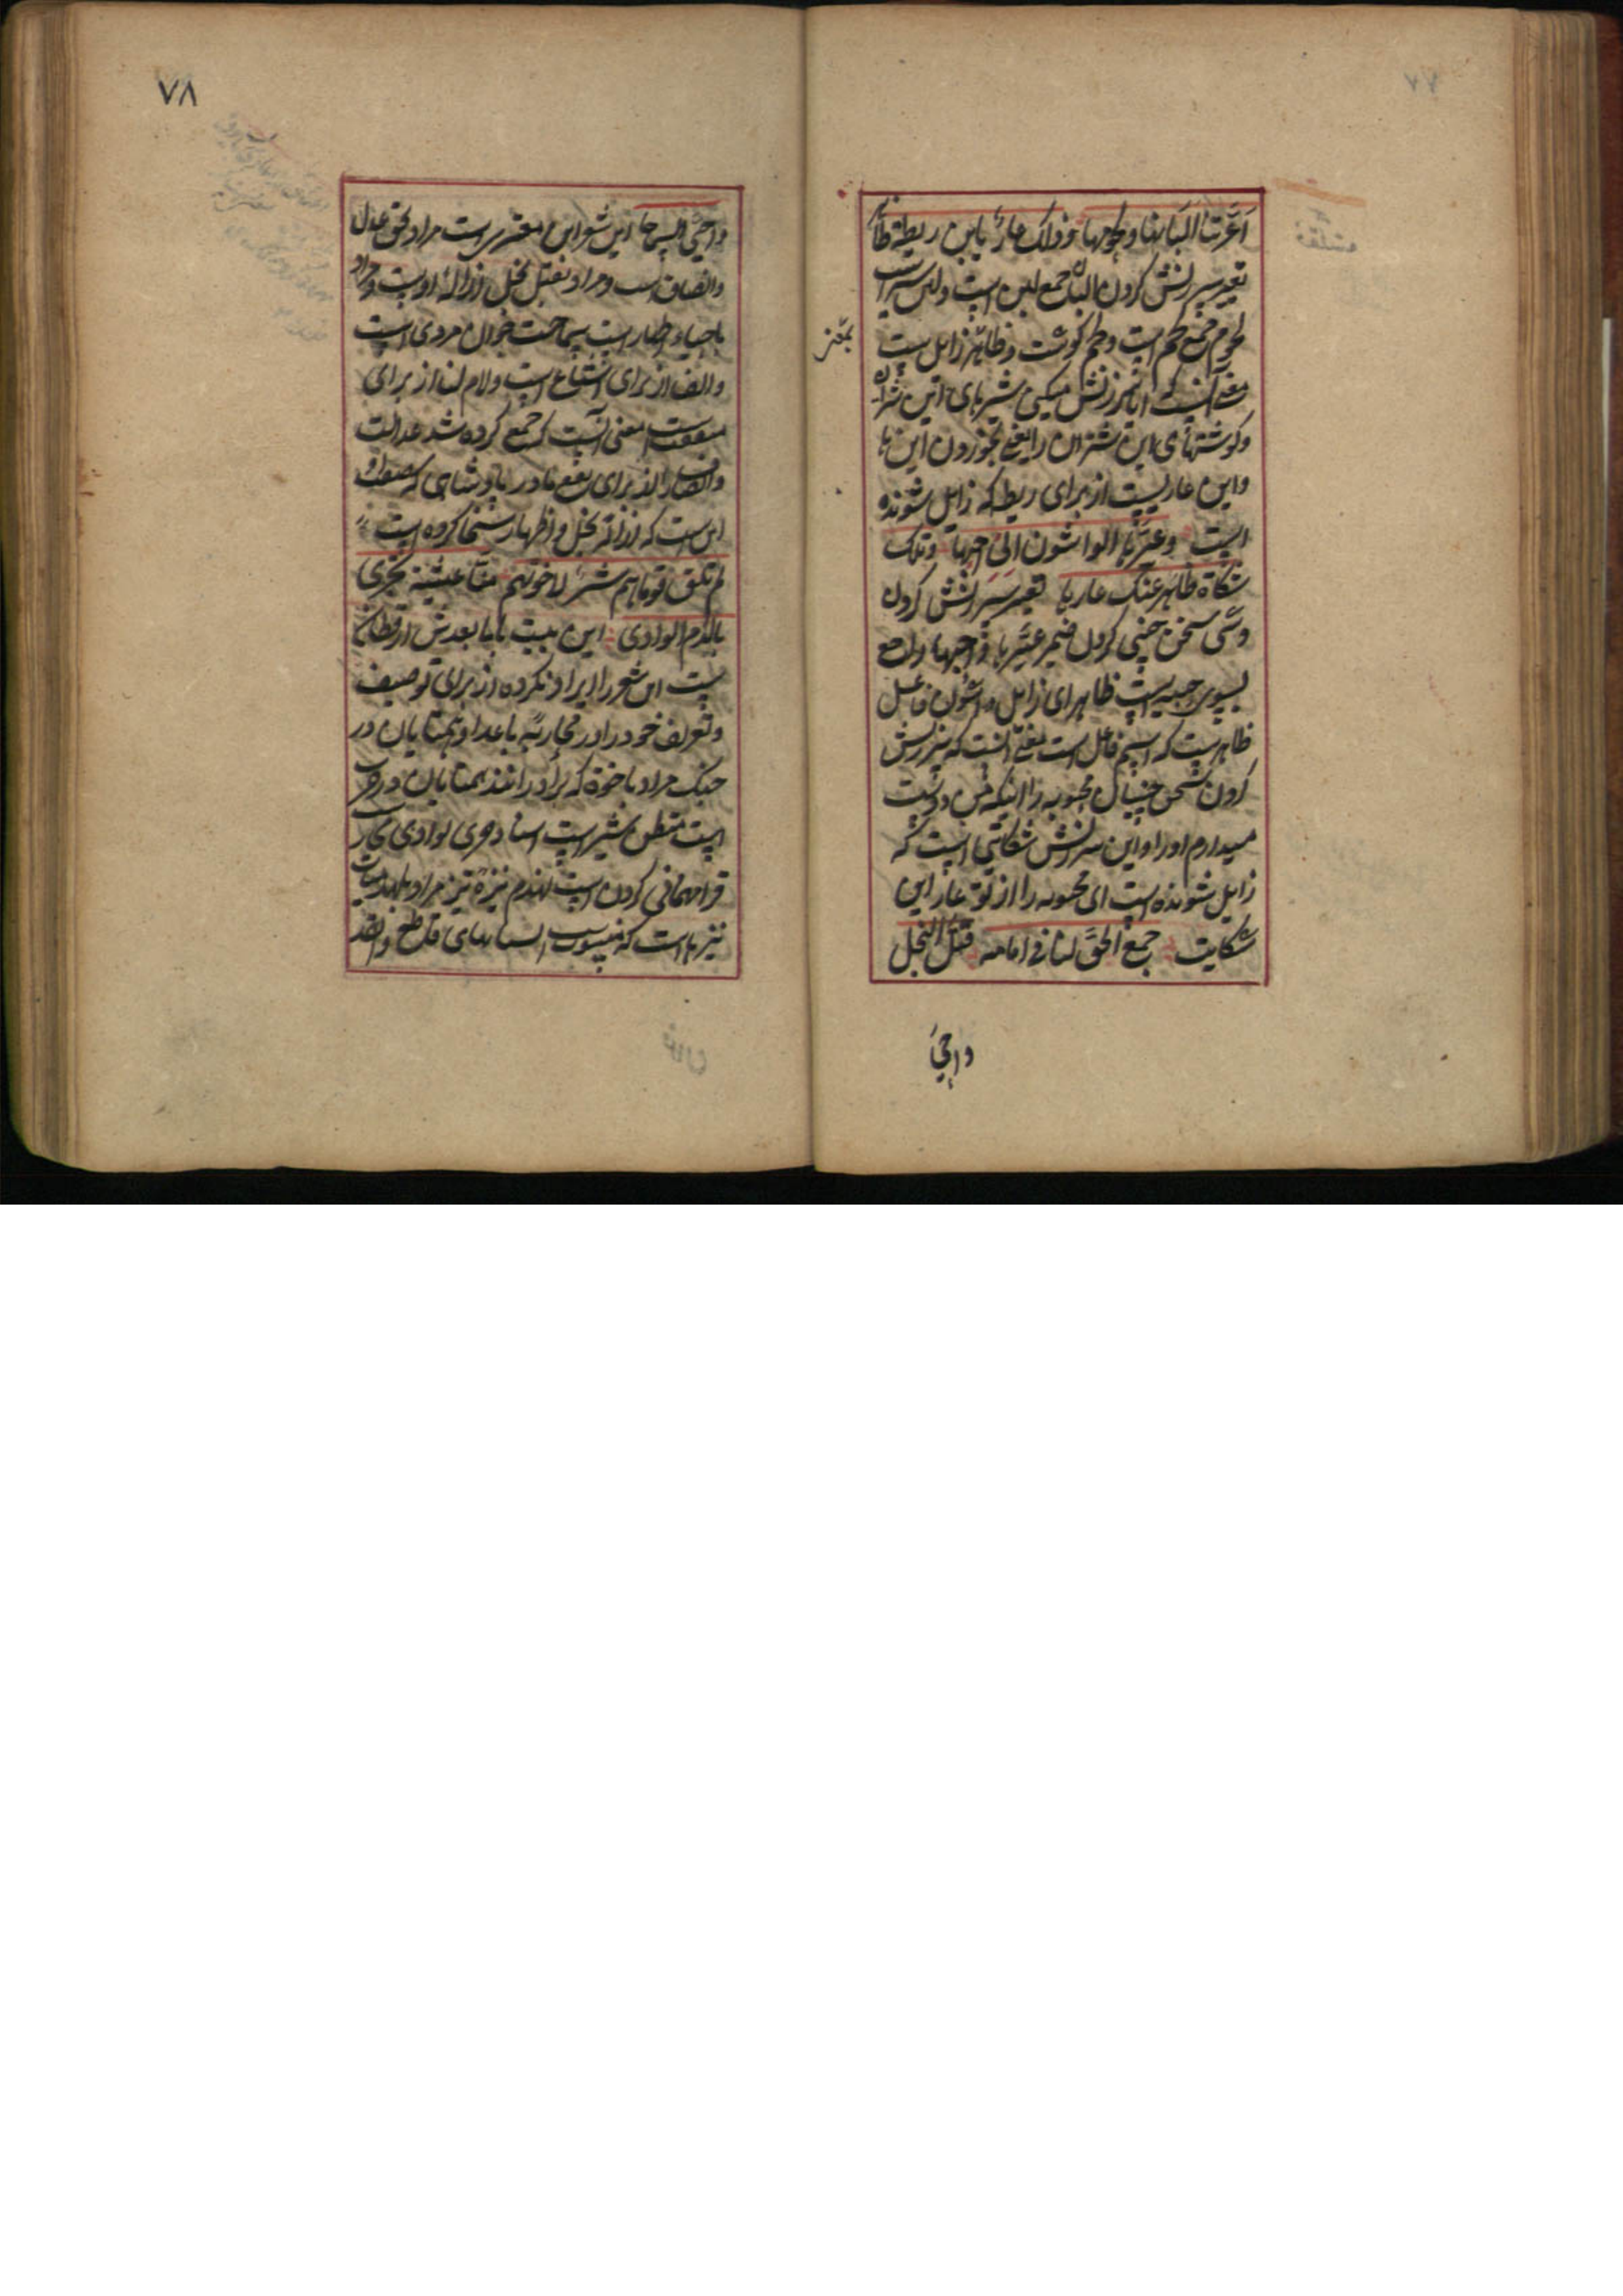 اعیّرتنا البانها ولحومها وذلک عارٌ یابن ریطة ظاهر
تعییر سرزنش کردن البان جمع لبن است ولبن شیر است
لحوم جمع لحم است ولحم کوشت وظاهر زایل است
معنی آنست که ایا سرزنش میکنی بشیرهای این شتران
وکوشتهای این شتران را یعنی بخوردن این ها
واین عاریست از برای ریطه که زایل شونده
است وعیّرها الواشون انی احبها وتلک
شکاة ظاهر عنک عارها تعییر سرزنش کردن
وشی سخن چینی کردن ضمیر عیّرها و احبها راجع
بسوی حبیبه است ظاهر ای زایل واشون فاعل
ظاهر است که اسم فاعل است معنی آنست که سرزنش
کردن سخن چینان محبوبه را اینکه من دوست
میدارم او را واین سرزنش شکایتی است که
زایل شونده است ای محبوبه را از تو عار این
شکایت جمع الحق لنا فی امامه قتل البخل
واحیَ
بمعنی
٧٨
واحیی السماحا این شعر ابن معتز است مراد بحق عدل
وانصاف است ومراد بقتل بخل ازاله اوست ومراد
باحیاء اظهار است سماحت جوان مردی است
والف از برای اشباع است ولام لنا از برای
منفعت است معنی آنست که جمع کرده شد عدالت
وانصاف از برای نفع ما در پادشاهی که صفت او
این است که ازاله بخل واظهار سخا کرده است
لم تلق قوما هم شرٌ لاخوتهم منا عشیة یجری
بالدم الوادی این بیت با ما بعدش از قطامی
است این شعر را ایراد نکرده از برای توصیف
وتعریف خود را در محاربه با اعدا وهمتایان در
جنک مراد باخوة که برادرانند همتایان در حرب
است
قرا مهمانی کردن است لهذم نیزه تیز مراد بلهذمیات
نیزها است که منسوب اسنانهای قاطع والقد